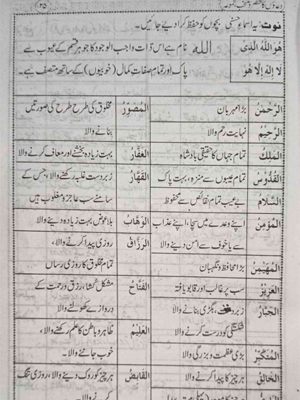 (۲۵)
نوٹ: یہ اسماءِ حسنیٰ بچوں کو حفظ کرا دیے جائیں۔
هُوَ اللهُ الَّذِى لَا اِلٰهَ اِلَّا هُوَ
اللہ نام ہے اس ذات واجب الوجود کا جو ہر قسم کے عیوب سے
پاک اور تمام صفات کمال (خوبیوں) کے ساتھ متصف ہے۔
اَلرَّحْمٰنُ بڑا مہربان
اَلرَّحِيْمُ نہایت رحم والا
اَلْمَلِكُ تمام جہاں کا حقیقی بادشاہ
اَلْقُدُّوْسُ تمام عیبوں سے منزہ، بہت پاک
اَلسَّلَامُ بے عیب تمام نقائص سے محفوظ
اَلْمُؤْمِنُ اپنے وعدے میں سچا، اپنے عذاب
سے بے خوف و امن دینے والا
اَلْمُهَيْمِنُ بڑا محافظ و نگہبان
اَلْعَزِيْزُ سب پر غالب اور قابو یافتہ
اَلْجَبَّارُ زبردست، بگڑی بنانے والا،
شکستگی کو درست کرنے والا
اَلْمُتَكَبِّرُ بڑی عظمت و بزرگی والا
اَلْخَالِقُ ہر چیز کا پیدا کرنے والا
اَلْمُصَوِّرُ مخلوق کی طرح طرح کی صورتیں
بنانے والا
اَلْغَفَّارُ بہت زیادہ بخشنے اور معاف کرنے والا
اَلْقَهَّارُ زبردست غلبہ رکھنے والا، جس کے
سامنے سب عاجز و مغلوب ہیں
اَلْوَهَّابُ بلا عوض بہت زیادہ دینے والا
اَلرَّزَّاقُ روزی پیدا کرنے والا،
تمام مخلوق کا روزی رساں
اَلْفَتَّاحُ مشکل کشا، رزق و رحمت کے
دروازے کھولنے والا
اَلْعَلِيْمُ ظاہر و باطن کا علم رکھنے والا،
خوب جاننے والا۔
اَلْقَابِضُ ہر چیز کو روک دینے والا، روزی تنگ